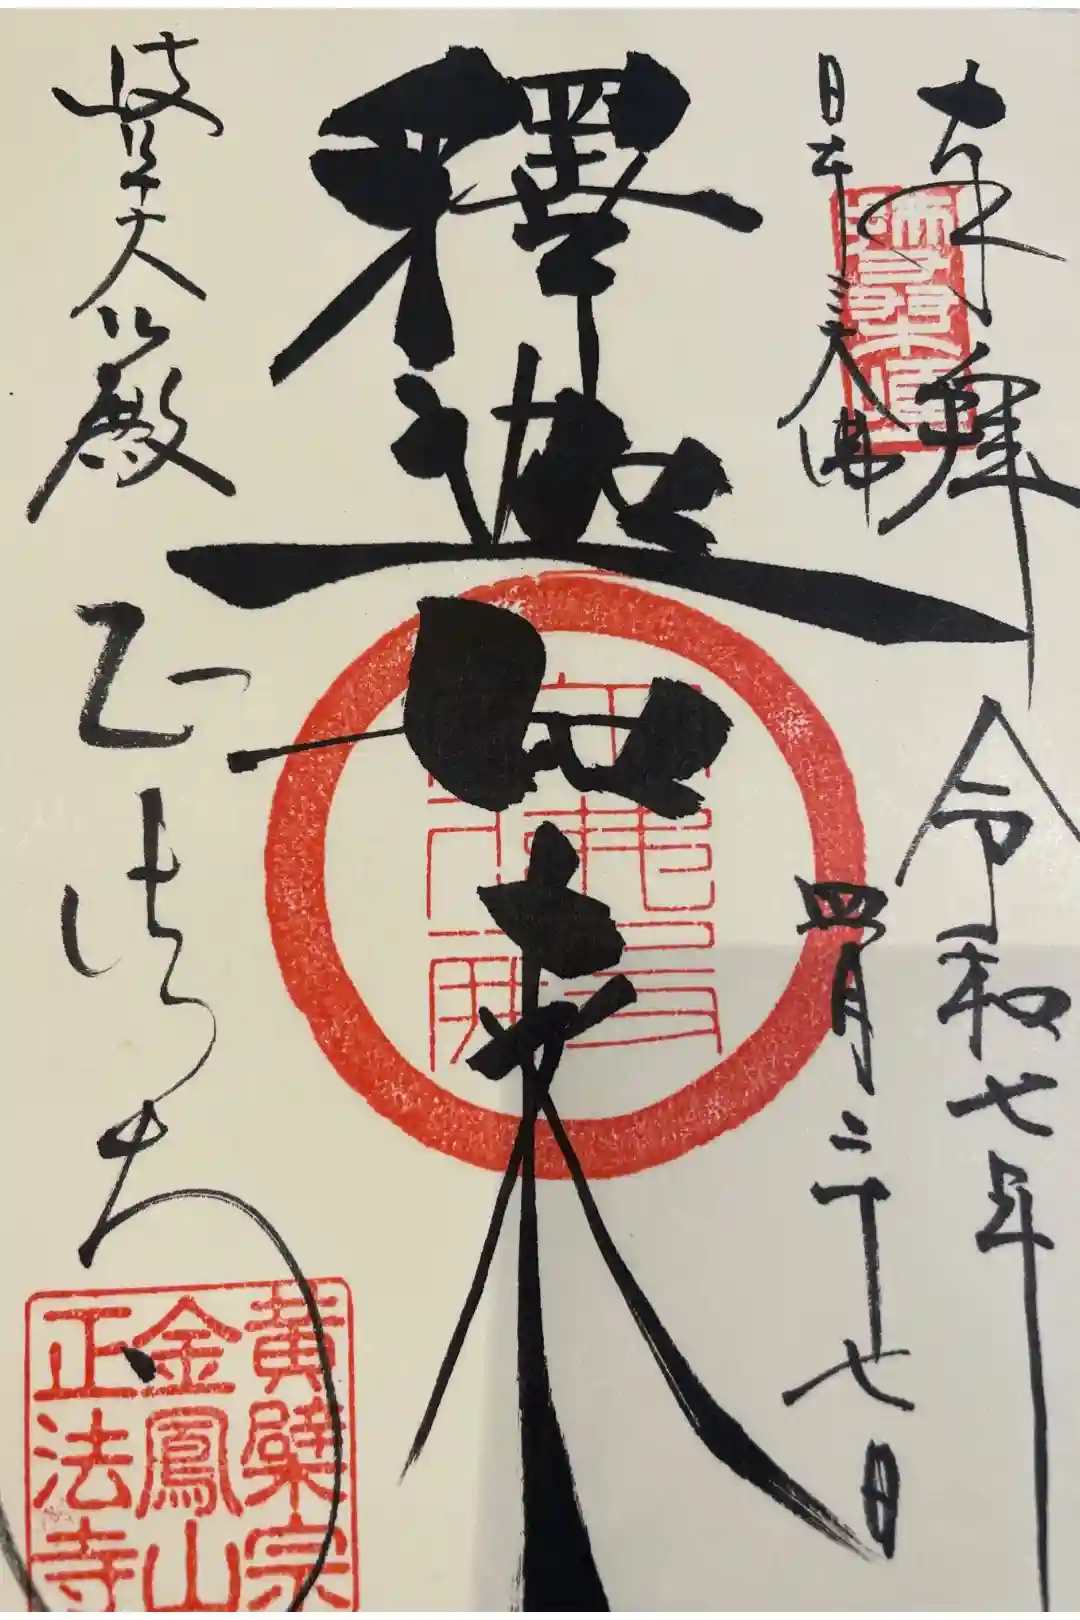 奉拝
令和七年
日本三大佛
四月二十七日
釋迦如来
岐阜大仏殿
正法寺
黄檗宗
金鳳山
正法寺